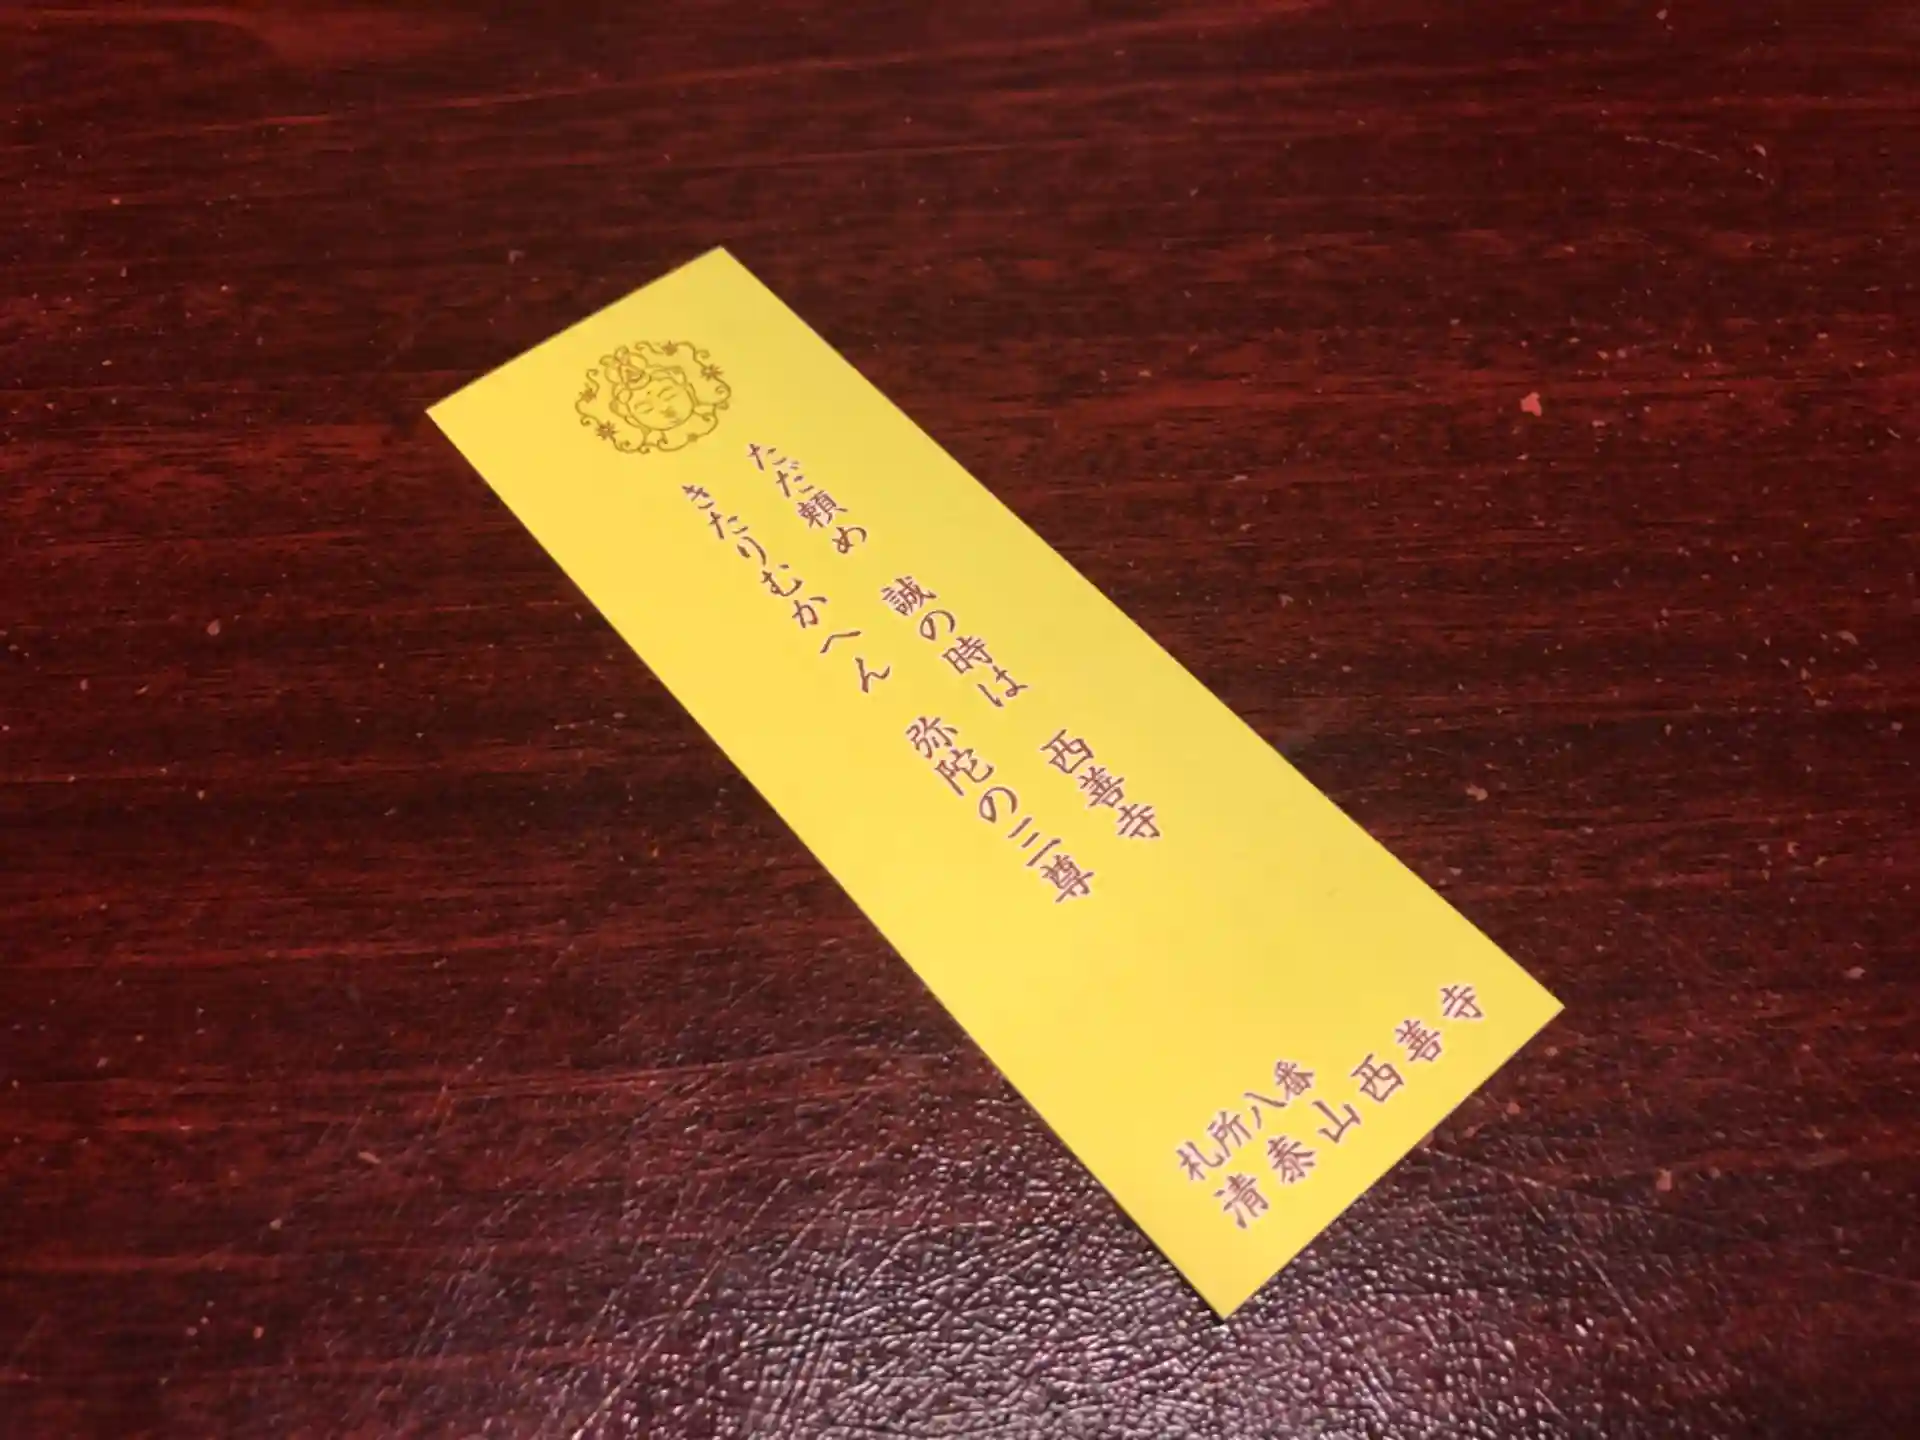 ただ頼め 誠の時は 西善寺
きたりむかへん 弥陀の三尊
札所八番
清泰山西善寺